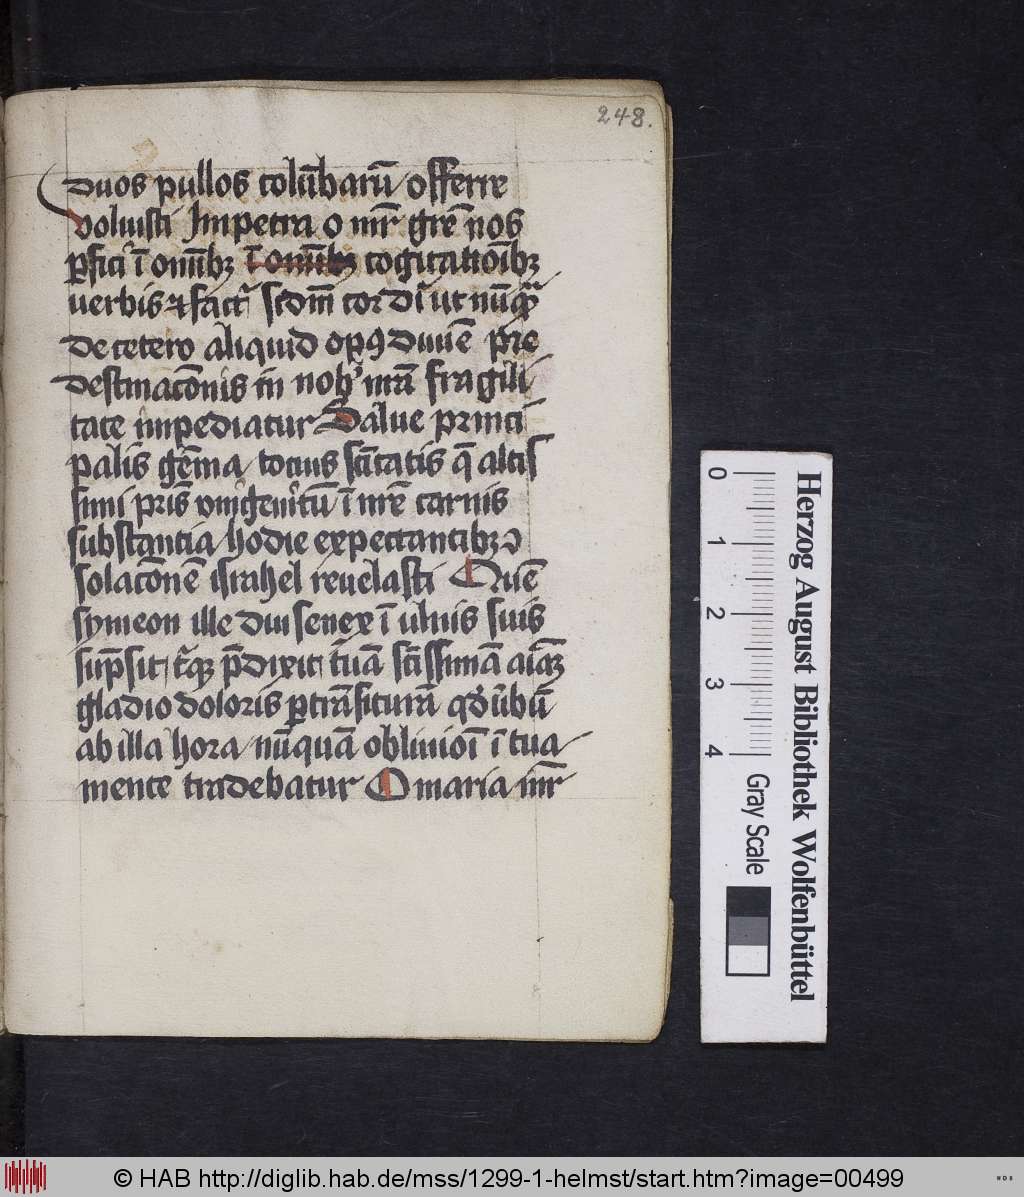 248.
duos pullos colūbarū offerre
voluisti Impetra o mr̄ grē nos
ꝑfici ī om̄ibꝫ ī om̄ibꝫ cogitatiōibꝫ
uerbis ⁊ fact̉ scd̄m cor dī ut nūqᷓ
de cetero aliquid opꝯ diuīe pre
destinacōnis in nob̉ nrā fragili
tate impediatur Salue princi
palis gēma tocius sc̄itatis q̄ altis
simi pris̄ vnigenitū ī nrē carnis
substantia hodie expectantibꝫ ↄ
solacōnē israhel reuelasti Quē
symeon ille diu senex ī ulnis suis
sup̄sit t̄qꝫ p̄dixit tuā sc̄issimā aīaꝫ
gladio doloris ꝑtrāsiturā
ab illa hora nūquā obliuioī ī tua
mente tradebatur O maria mr̄
Herzog August Bibliothek Wolfenbüttel
0 1 2 3 4 Gray Scale
© HAB http://diglib.hab.de/mss/1299-1-helmst/start.htm?image=00499